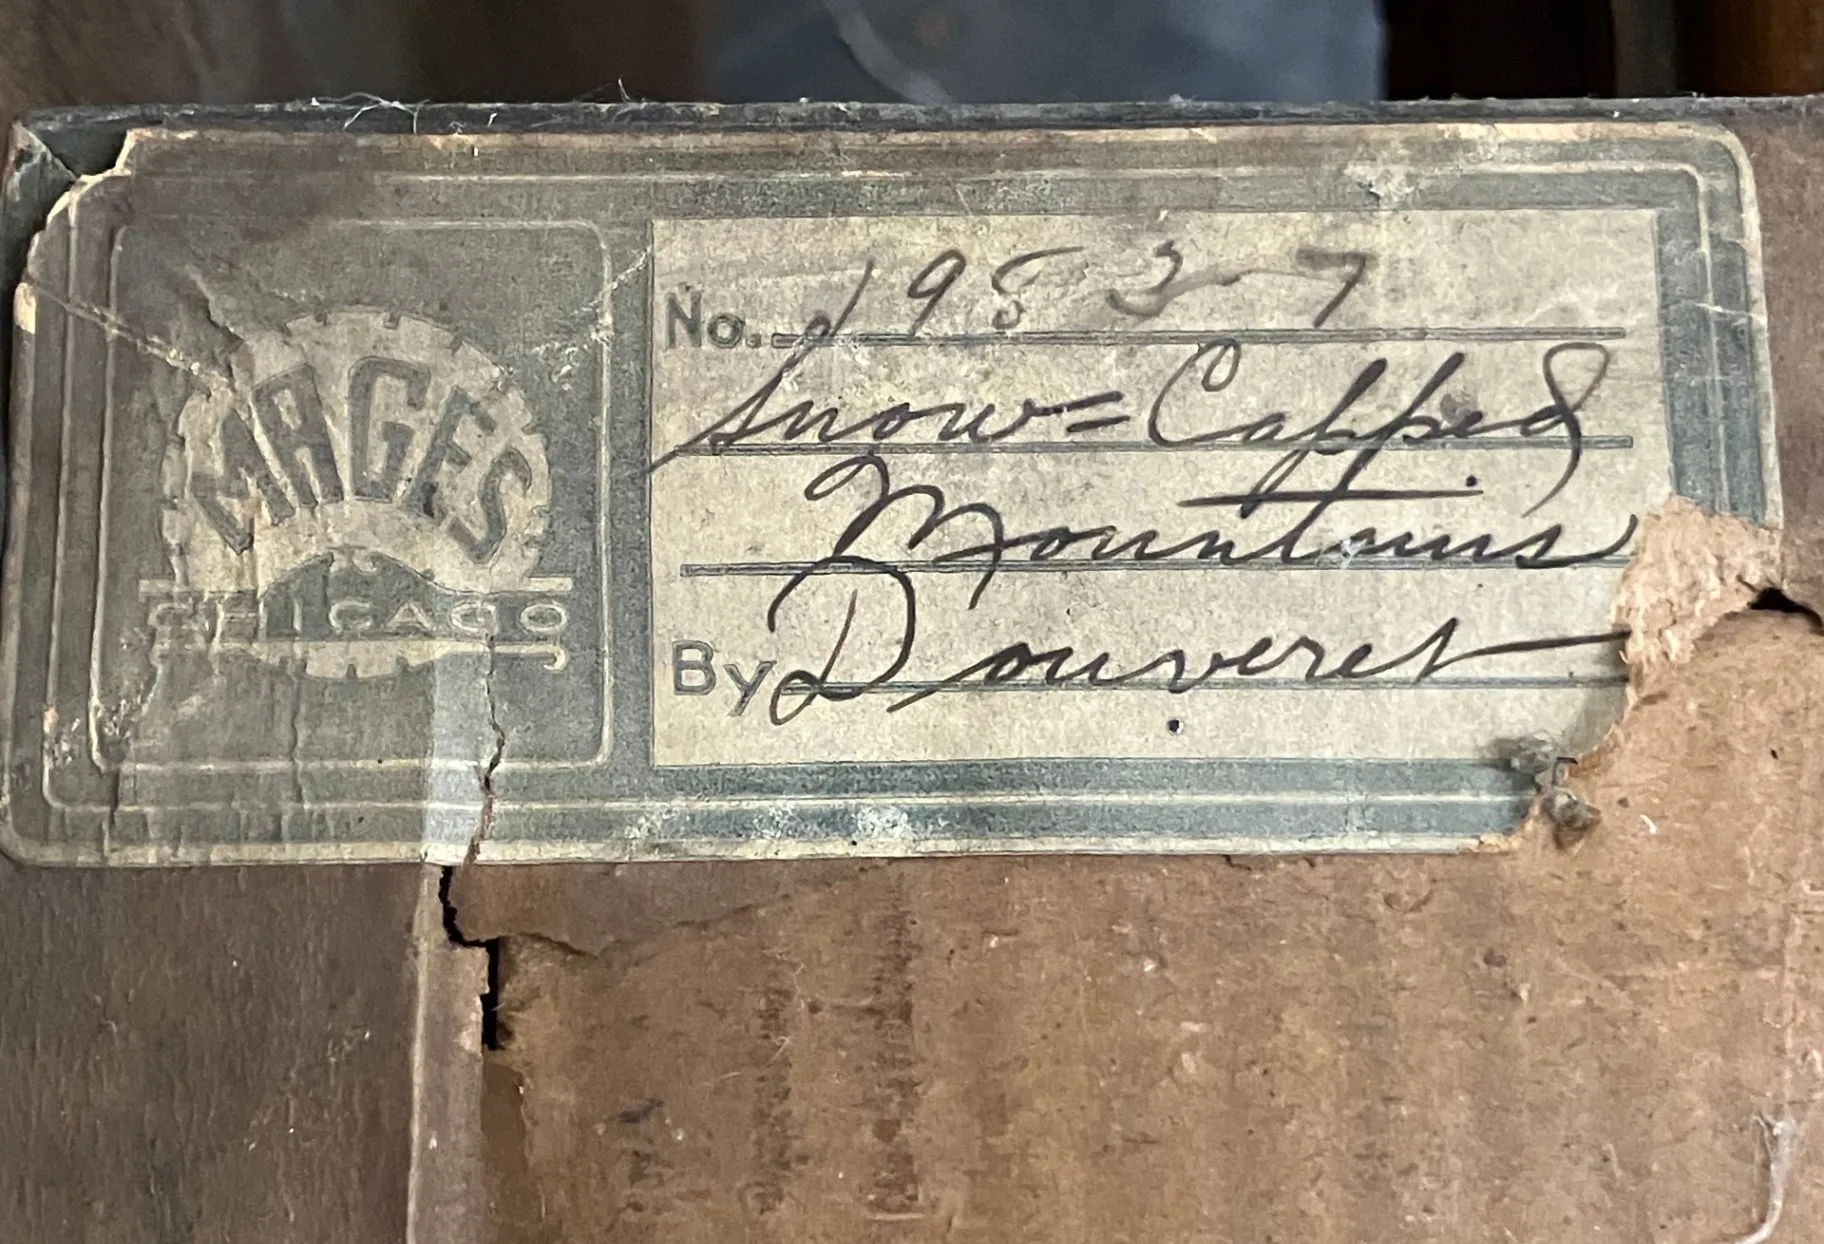 MAGES
CHICAGO
No. 1953-7
Snow=Capped
Mountains
By Douveret